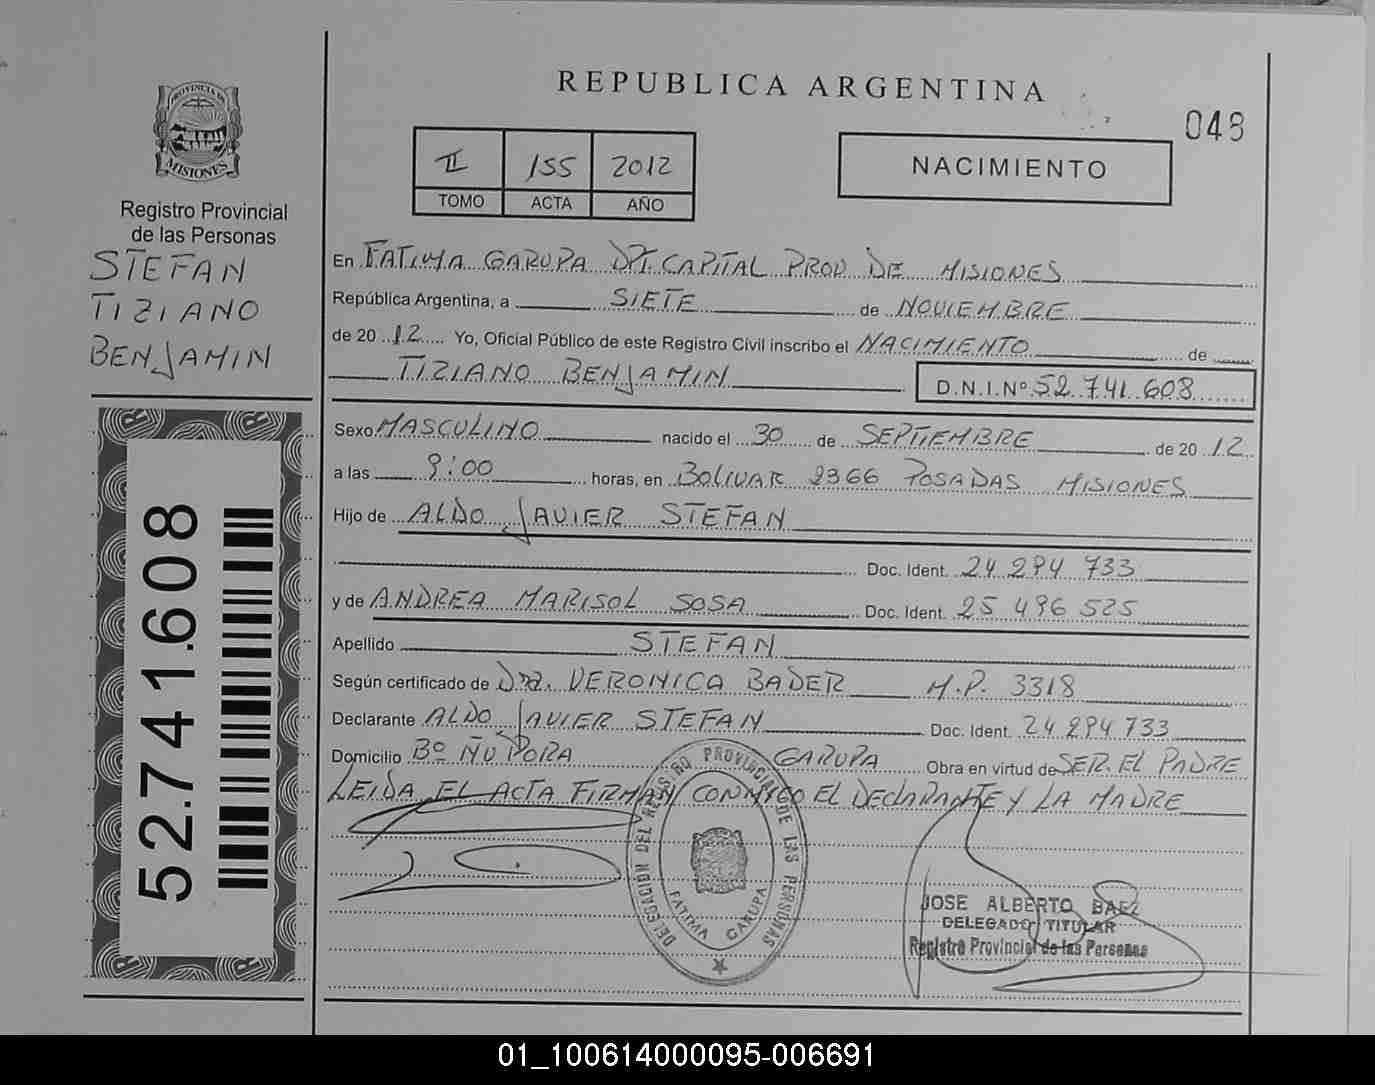 REPUBLICA ARGENTINA
048
PROVINCIA DE
MISIONES
Registro Provincial
de las Personas
STEFAN
TIZIANO
BENJAMIN
II 155 2012
TOMO ACTA AÑO
NACIMIENTO
En FATIMA GARUPA DPT. CAPITAL PROV DE MISIONES
República Argentina, a SIETE de NOVIEMBRE
de 20 12 Yo, Oficial Público de este Registro Civil inscribo el NACIMIENTO de
TIZIANO BENJAMIN D.N.I.Nº 52.741.608
Sexo MASCULINO nacido el 30 de SEPTIEMBRE de 20 12
a las 9:00 horas, en BOLIVAR 2366 POSADAS MISIONES
Hijo de ALDO JAVIER STEFAN
Doc. Ident. 24 294 733
y de ANDREA MARISOL SOSA Doc. Ident. 25 496 525
Apellido STEFAN
Según certificado de Dra. VERONICA BADER M.P. 3318
Declarante ALDO JAVIER STEFAN Doc. Ident. 24 294 733
Domicilio Bº ÑU PORA GARUPA Obra en virtud de SER EL PADRE
LEIDA EL ACTA FIRMAN CONMIGO EL DECLARANTE Y LA MADRE
52.741.608
DELEGACION DEL REGISTRO PROVINCIAL DE LAS PERSONAS
FATIMA GARUPA
JOSE ALBERTO BAEZ
DELEGADO TITULAR
Registro Provincial de las Personas
01_100614000095-006691